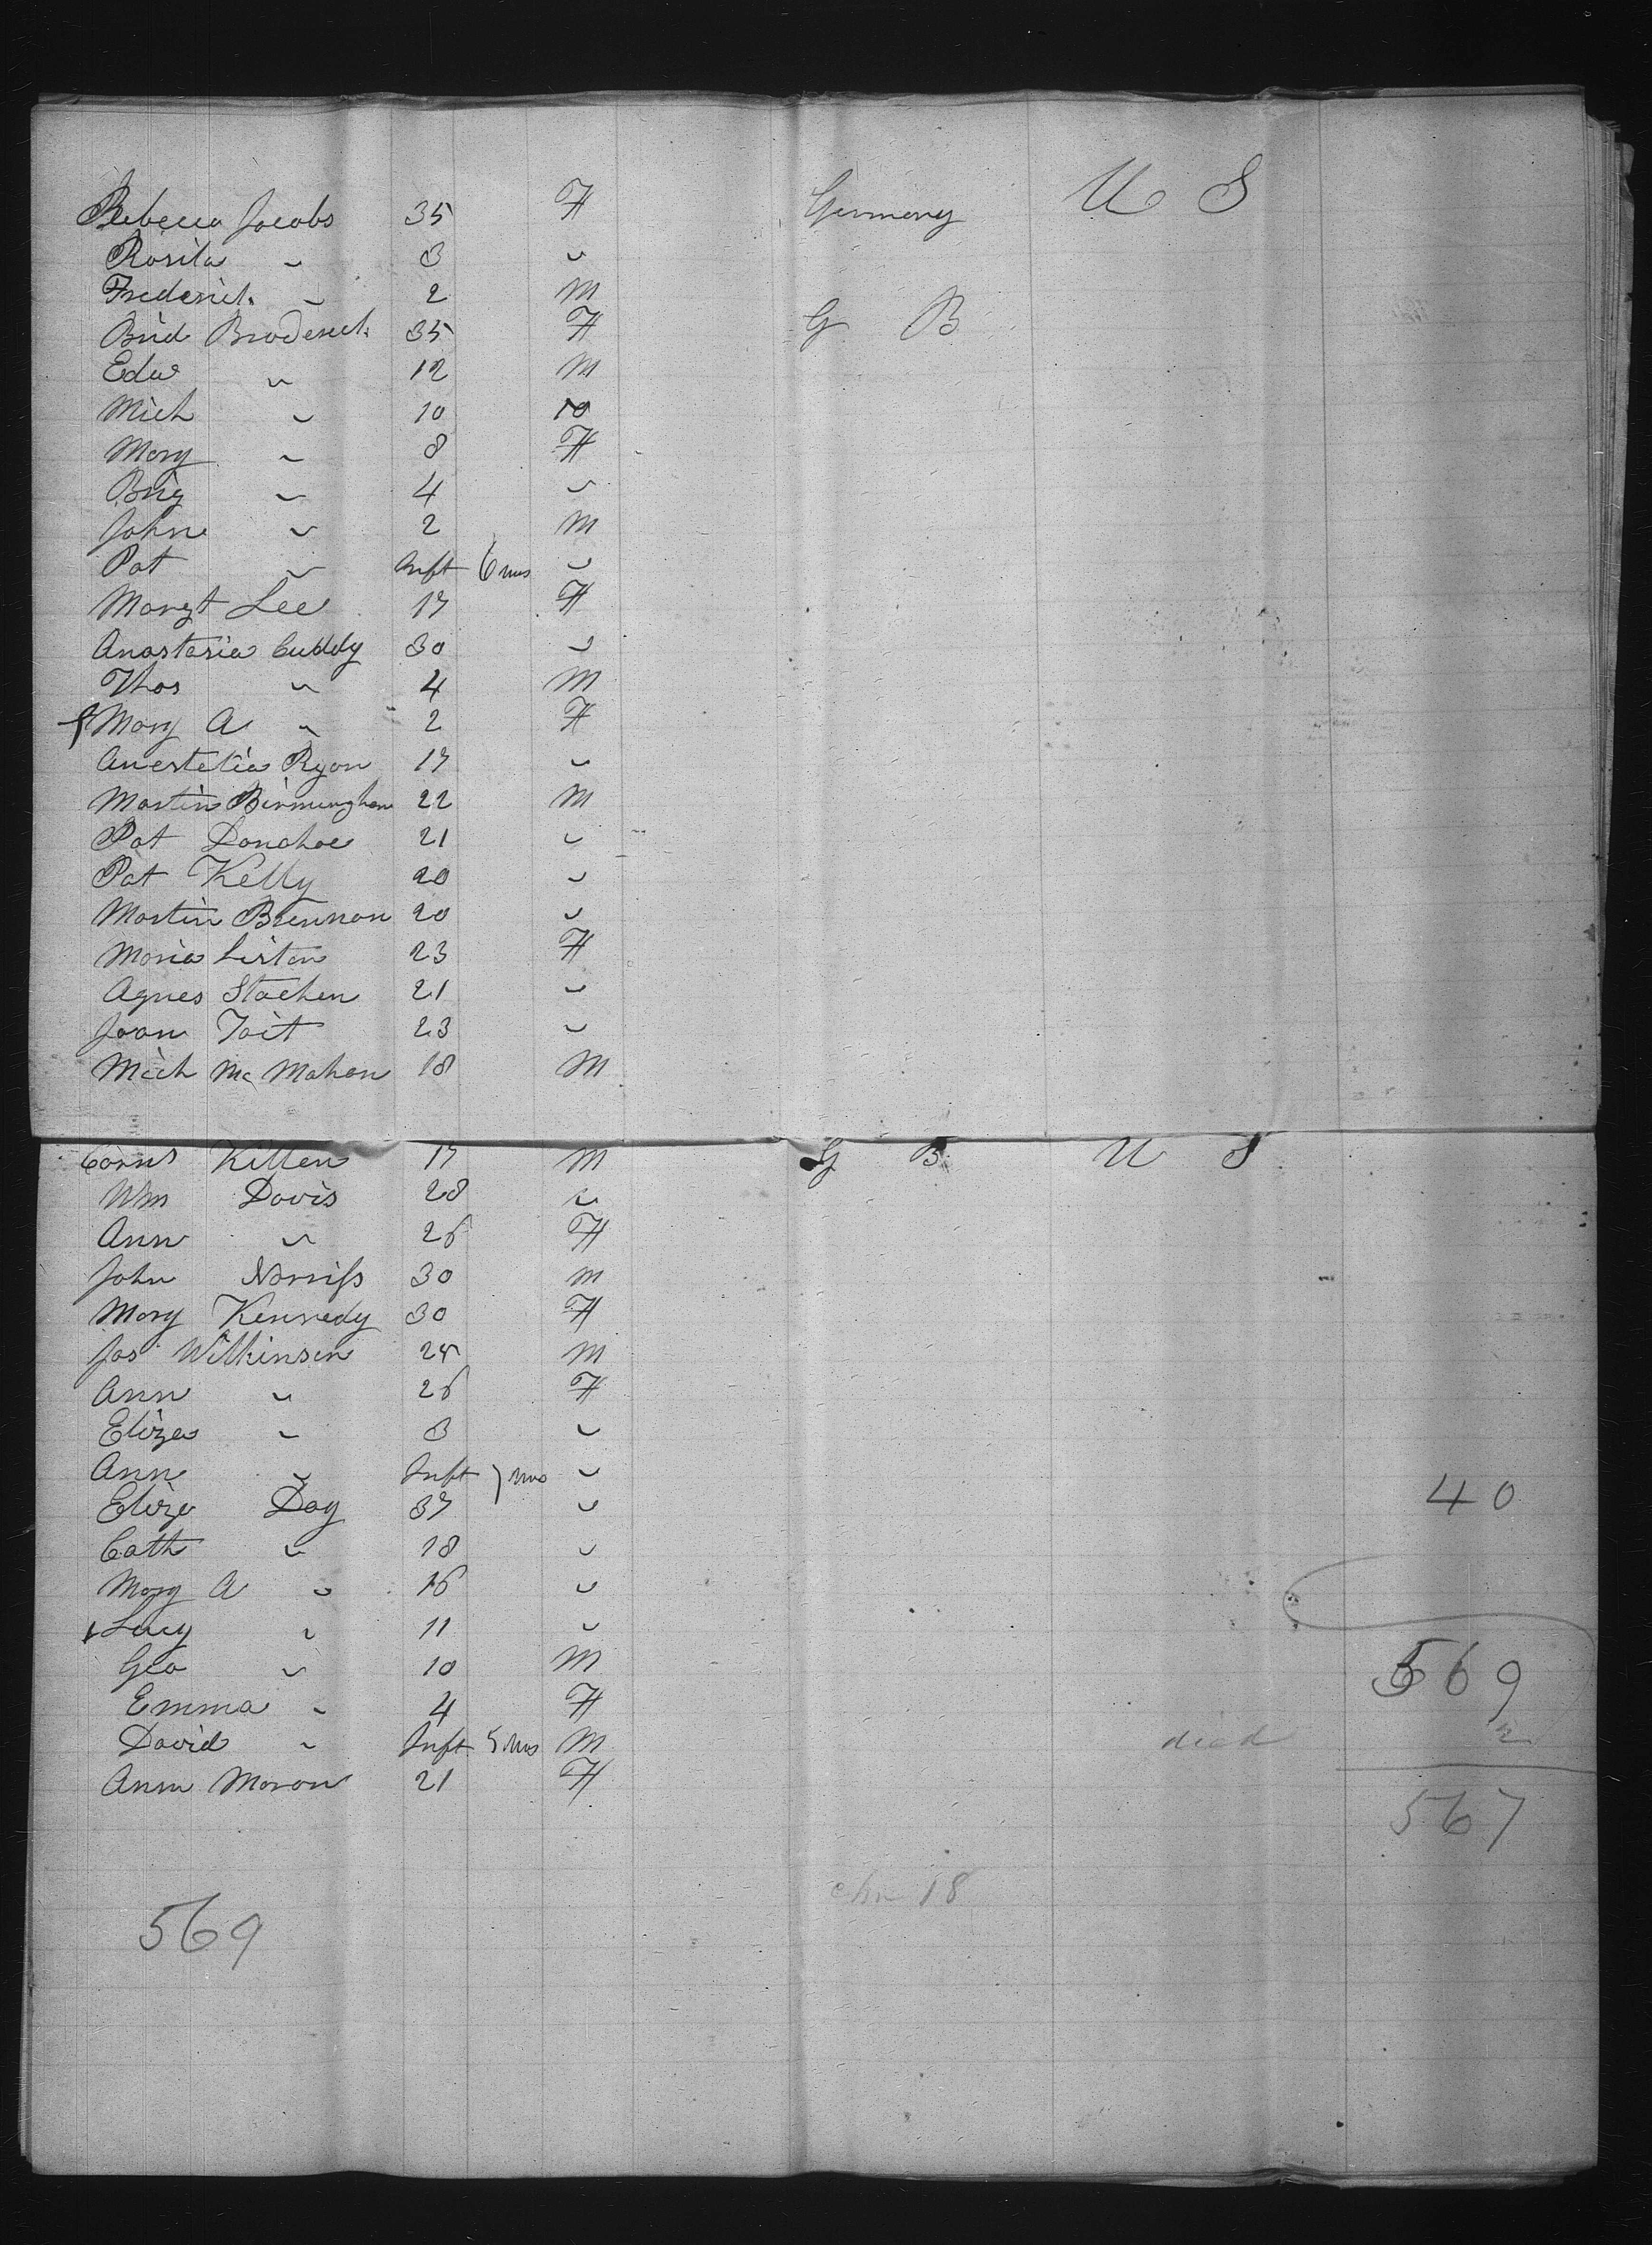 Rebecca Jacobs 35 F Germany U S
Rosita " 3 "
Frederick " 2 M
Brid Broderick 35 F G B
Edw " 12 M
Mich " 10 10
Mary " 8 F
Brig " 4 "
John " 2 M
Pat " Inft 6 mos "
Margt Lee 17 F
Anastasia Cuddy 30 "
Thos " 4 M
Mary A " 2 F
Anestetia Ryan 17 "
Martin Birmingham 22 M
Pat Donahoe 21 "
Pat Kelly 20 "
Martin Brennan 20 "
Maria Liston 23 F
Agnes Stachen 21 "
Joan Tait 23 "
Mich Mc Mahon 18 M
Corns Killen 17 M G B U S
Wm Davis 28 "
Ann " 26 F
John Norriss 30 M
Mary Kennedy 30 F
Jas Wilkinson 25 M
Ann " 26 F
Eliza " 3 "
Ann " Inft 7 mos "
Eliza Day 37 " 40
Cath " 18 "
Mary A " 16 "
Lucy " 11 "
Geo " 10 M 569
Emma " 4 F
David " Inft 5 mos M died 2
Ann Moran 21 F
567
chn 18
569